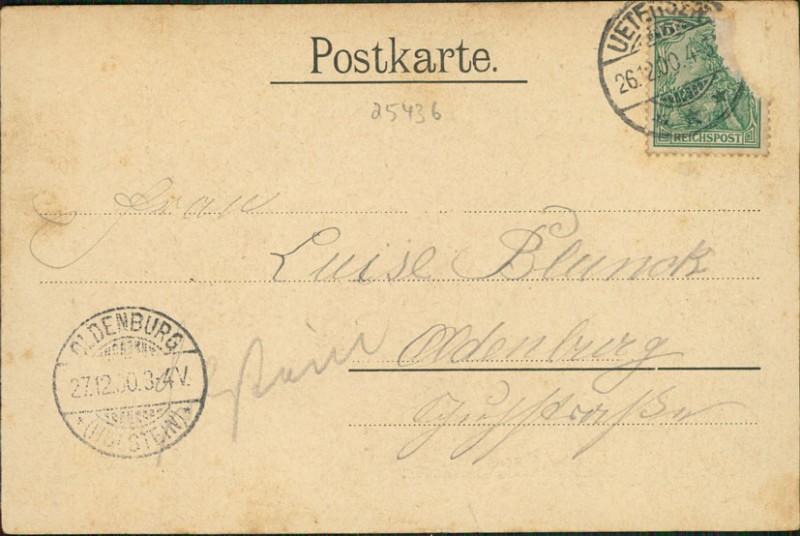 Postkarte.
25436
UETERSEN
26.12.00.4
REICHSPOST
Frau
Luise Blunck
OLDENBURG
27.12.00.3-4V.
*(HOLSTEIN)*
Holstein
Oldenburg